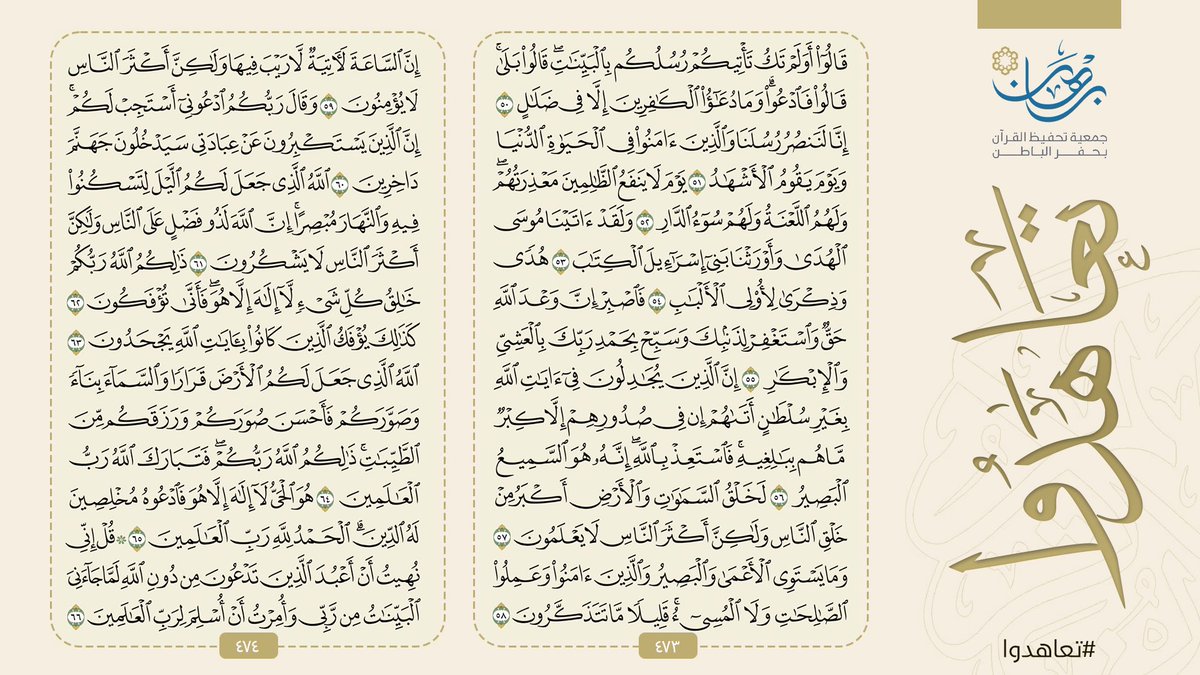 برهان
جمعية تحفيظ القرآن
بحفر الباطن
تعاهدوا
#تعاهدوا
قَالُوٓاْ أَوَلَمْ تَكُ تَأْتِيكُمْ رُسُلُكُم بِالْبَيِّنَاتِۖ قَالُواْ بَلَىٰۚ
قَالُواْ فَادْعُواْۗ وَمَا دُعَٰٓؤُاْ الْكَافِرِينَ إِلَّا فِي ضَلَالٍ ٥٠
إِنَّا لَنَنصُرُ رُسُلَنَا وَالَّذِينَ ءَامَنُواْ فِي الْحَيَوٰةِ الدُّنْيَا
وَيَوْمَ يَقُومُ الْأَشْهَٰدُ ٥١ يَوْمَ لَا يَنفَعُ الظَّالِمِينَ مَعْذِرَتُهُمْۖ
وَلَهُمُ اللَّعْنَةُ وَلَهُمْ سُوٓءُ الدَّارِ ٥٢ وَلَقَدْ ءَاتَيْنَا مُوسَى
الْهُدَىٰ وَأَوْرَثْنَا بَنِيٓ إِسْرَٰٓءِيلَ الْكِتَٰبَ ٥٣ هُدًى
وَذِكْرَىٰ لِأُوْلِي الْأَلْبَٰبِ ٥٤ فَاصْبِرْ إِنَّ وَعْدَ اللَّهِ
حَقٌّ وَاسْتَغْفِرْ لِذَنۢبِكَ وَسَبِّحْ بِحَمْدِ رَبِّكَ بِالْعَشِيِّ
وَالْإِبْكَٰرِ ٥٥ إِنَّ الَّذِينَ يُجَٰدِلُونَ فِيٓ ءَايَٰتِ اللَّهِ
بِغَيْرِ سُلْطَٰنٍ أَتَىٰهُمْ إِن فِي صُدُورِهِمْ إِلَّا كِبْرٌ
مَّا هُم بِبَٰلِغِيهِۚ فَاسْتَعِذْ بِاللَّهِۖ إِنَّهُۥ هُوَ السَّمِيعُ
الْبَصِيرُ ٥٦ لَخَلْقُ السَّمَٰوَٰتِ وَالْأَرْضِ أَكْبَرُ مِنْ
خَلْقِ النَّاسِ وَلَٰكِنَّ أَكْثَرَ النَّاسِ لَا يَعْلَمُونَ ٥٧
وَمَا يَسْتَوِي الْأَعْمَىٰ وَالْبَصِيرُ وَالَّذِينَ ءَامَنُواْ وَعَمِلُواْ
الصَّٰلِحَٰتِ وَلَا الْمُسِيٓءُۚ قَلِيلًا مَّا تَتَذَكَّرُونَ ٥٨
٤٧٣
إِنَّ السَّاعَةَ لَأٓتِيَةٌ لَّا رَيْبَ فِيهَا وَلَٰكِنَّ أَكْثَرَ النَّاسِ
لَا يُؤْمِنُونَ ٥٩ وَقَالَ رَبُّكُمُ ادْعُونِيٓ أَسْتَجِبْ لَكُمْۚ
إِنَّ الَّذِينَ يَسْتَكْبِرُونَ عَنْ عِبَادَتِي سَيَدْخُلُونَ جَهَنَّمَ
دَاخِرِينَ ٦٠ اللَّهُ الَّذِي جَعَلَ لَكُمُ الَّيْلَ لِتَسْكُنُواْ
فِيهِ وَالنَّهَارَ مُبْصِرًاۚ إِنَّ اللَّهَ لَذُو فَضْلٍ عَلَى النَّاسِ وَلَٰكِنَّ
أَكْثَرَ النَّاسِ لَا يَشْكُرُونَ ٦١ ذَٰلِكُمُ اللَّهُ رَبُّكُمْ
خَٰلِقُ كُلِّ شَيْءٍ لَّآ إِلَٰهَ إِلَّا هُوَۖ فَأَنَّىٰ تُؤْفَكُونَ ٦٢
كَذَٰلِكَ يُؤْفَكُ الَّذِينَ كَانُواْ بِـَٔايَٰتِ اللَّهِ يَجْحَدُونَ ٦٣
اللَّهُ الَّذِي جَعَلَ لَكُمُ الْأَرْضَ قَرَارًا وَالسَّمَآءَ بِنَآءً
وَصَوَّرَكُمْ فَأَحْسَنَ صُوَرَكُمْ وَرَزَقَكُم مِّنَ
الطَّيِّبَٰتِۚ ذَٰلِكُمُ اللَّهُ رَبُّكُمْۖ فَتَبَارَكَ اللَّهُ رَبُّ
الْعَٰلَمِينَ ٦٤ هُوَ الْحَيُّ لَآ إِلَٰهَ إِلَّا هُوَ فَادْعُوهُ مُخْلِصِينَ
لَهُ الدِّينَۗ الْحَمْدُ لِلَّهِ رَبِّ الْعَٰلَمِينَ ٦٥ ۞ قُلْ إِنِّي
نُهِيتُ أَنْ أَعْبُدَ الَّذِينَ تَدْعُونَ مِن دُونِ اللَّهِ لَمَّا جَآءَنِيَ
الْبَيِّنَٰتُ مِن رَّبِّي وَأُمِرْتُ أَنْ أُسْلِمَ لِرَبِّ الْعَٰلَمِينَ ٦٦
٤٧٤